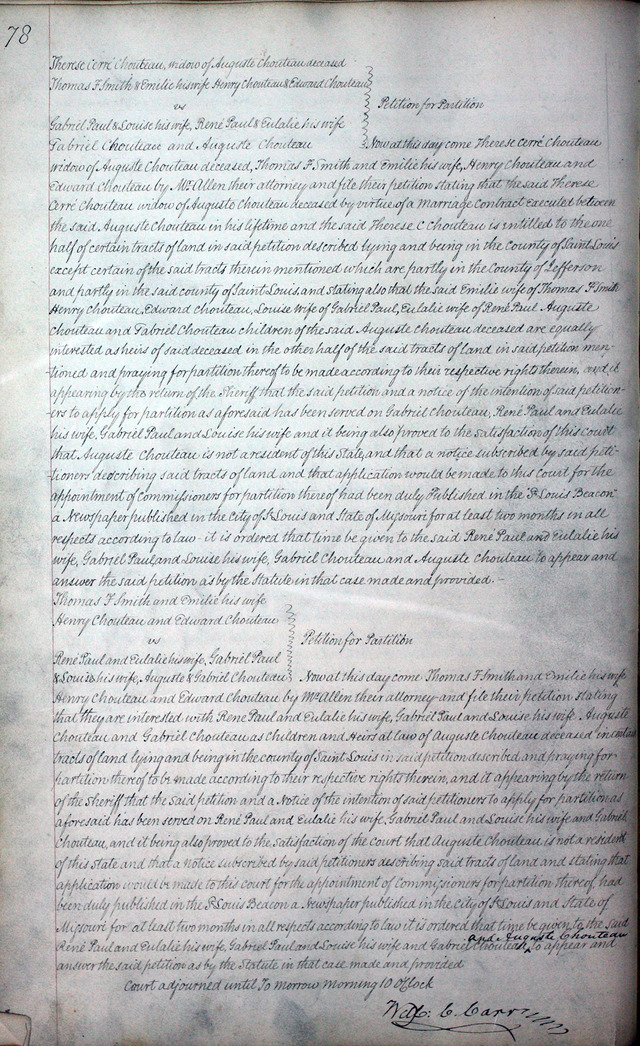 78
Therese Cerré Chouteau, widow of Auguste Chouteau deceased
Thomas F Smith & Emilie his wife Henry Chouteau & Edward Chouteau
vs
Petition for Partition
Gabriel Paul & Louise his wife, René Paul & Eulalie his wife
Gabriel Chouteau and Auguste Chouteau Now at this day come Therese Cerré Chouteau
widow of Auguste Chouteau deceased, Thomas F. Smith and Emilie his wife, Henry Chouteau and
Edward Chouteau by McAllen their attorney and file their petition stating that the said Therese
Cerré Chouteau widow of Auguste Chouteau deceased by virtue of a Marriage Contract executed between
the said Auguste Chouteau in his lifetime and the said Therese C Chouteau is intitled to the one
half of certain tracts of land in said petition described lying and being in the County of Saint Louis
except certain of the said tracts therein mentioned which are partly in the County of Jefferson
and partly in the said county of Saint Louis and stating also that the said Emilie wife of Thomas F. Smith
Henry Chouteau, Edward Chouteau, Louise wife of Gabriel Paul, Eulalie wife of René Paul Auguste
Chouteau and Gabriel Chouteau children of the said Auguste Chouteau deceased are equally
interested as heirs of said deceased in the other half of the said tracts of land in said petition men-
-tioned and praying for partition thereof to be made according to their respective rights therein, and it
appearing by the return of the Sheriff that the said petition and a notice of the intention of said petition-
-ers to apply for partition as aforesaid has been served on Gabriel Chouteau, René Paul and Eulalie
his wife, Gabriel Paul and Louise his wife and it being also proved to the satisfaction of this court
that Auguste Chouteau is not a resident of this State, and that a notice subscribed by said peti-
-tioners describing said tracts of land and that application would be made to this Court for the
appointment of Commissioners for partition thereof had been duly Published in the "St Louis Beacon"
a Newspaper published in the City of St Louis and State of Missouri for at least two months in all
respects according to law - it is ordered that time be given to the said René Paul and Eulalie his
wife, Gabriel Paul and Louise his wife, Gabriel Chouteau and Auguste Chouteau to appear and
answer the said petition as by the Statute in that case made and provided. -
Thomas F Smith and Emilie his wife
Henry Chouteau and Edward Chouteau
vs
Petition for Partition
René Paul and Eulalie his wife, Gabriel Paul
& Louise his wife, Auguste & Gabriel Chouteau Now at this day come Thomas F Smith and Emilie his wife
Henry Chouteau and Edward Chouteau by McAllen their attorney and file their petition stating
that they are interested with René Paul and Eulalie his wife, Gabriel Paul and Louise his wife Auguste
Chouteau and Gabriel Chouteau as children and Heirs at law of Auguste Chouteau deceased in certain
tracts of land lying and being in the county of Saint Louis in said petition described and praying for
partition thereof to be made according to their respective rights therein, and it appearing by the return
of the Sheriff that the said petition and a Notice of the intention of said petitioners to apply for partition as
aforesaid has been served on René Paul and Eulalie his wife, Gabriel Paul and Louise his wife and Gabriel
Chouteau, and it being also proved to the satisfaction of the court that Auguste Chouteau is not a resident
of this State and that a notice subscribed by said petitioners describing said tracts of land and stating that
application would be made to this court for the appointment of Commissioners for partition thereof, had
been duly published in the St Louis Beacon a Newspaper published in the City of St Louis and State of
Missouri for at least two months in all respects according to law it is ordered that time be given to the said
and Auguste Chouteau
René Paul and Eulalie his wife, Gabriel Paul and Louise his wife and Gabriel Chouteau to appear and
answer the said petition as by the Statute in that case made and provided
Court adjourned until To morrow Morning 10 O'Clock
Wm: C. Carr